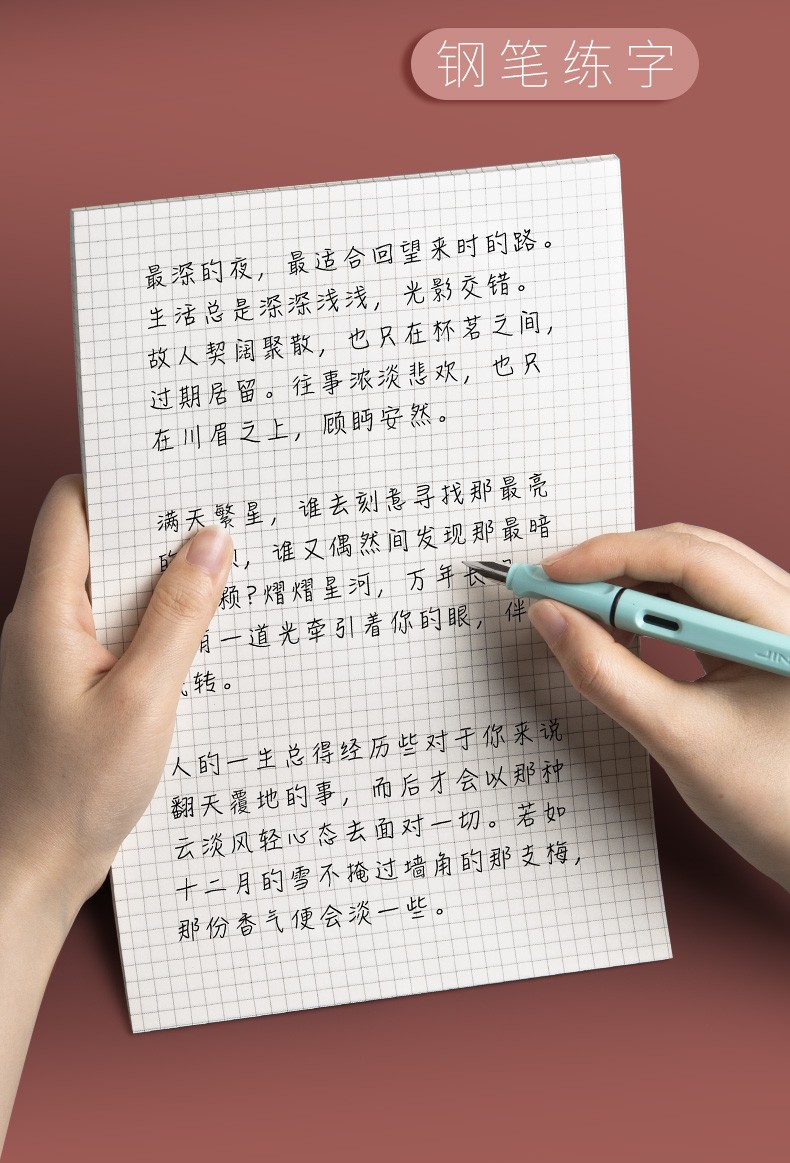 钢笔练字
最深的夜，最适合回望来时的路。
生活总是深深浅浅，光影交错。
故人契阔聚散，也只在杯茗之间，
过期居留。往事浓淡悲欢，也只
在川眉之上，顾眄安然。
满天繁星，谁去刻意寻找那最亮
的，谁又偶然间发现那最暗
颗?熠熠星河，万年长
有一道光牵引着你的眼，伴
转。
人的一生总得经历些对于你来说
翻天覆地的事，而后才会以那种
云淡风轻心态去面对一切。若如
十二月的雪不掩过墙角的那支梅，
那份香气便会淡一些。